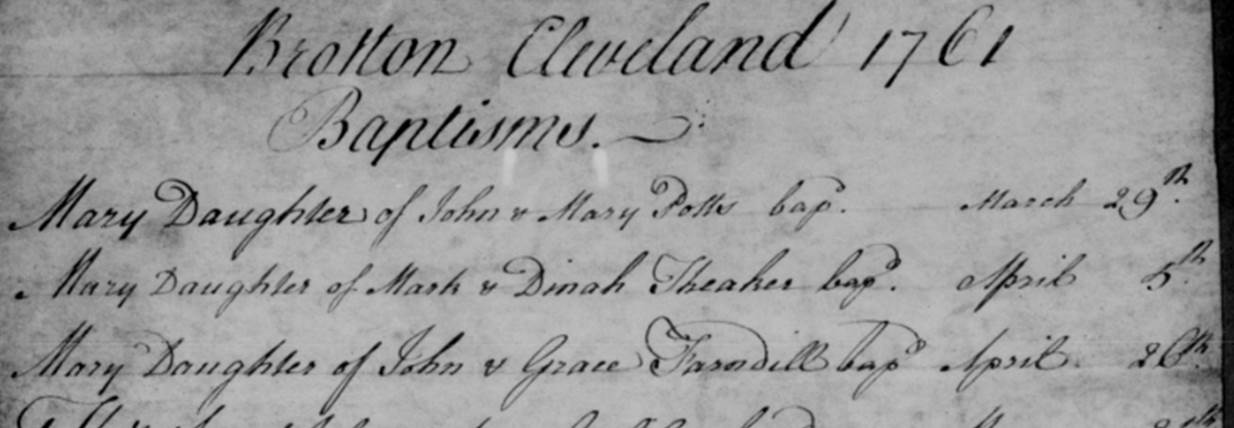 Brotton Cleveland 1761
Baptisms.
Mary Daughter of John & Mary Potts bapd. March 29th.
Mary Daughter of Mark & Dinah Theaker bapd. April 5th.
Mary Daughter of John & Grace Farndill bapd April 26th.